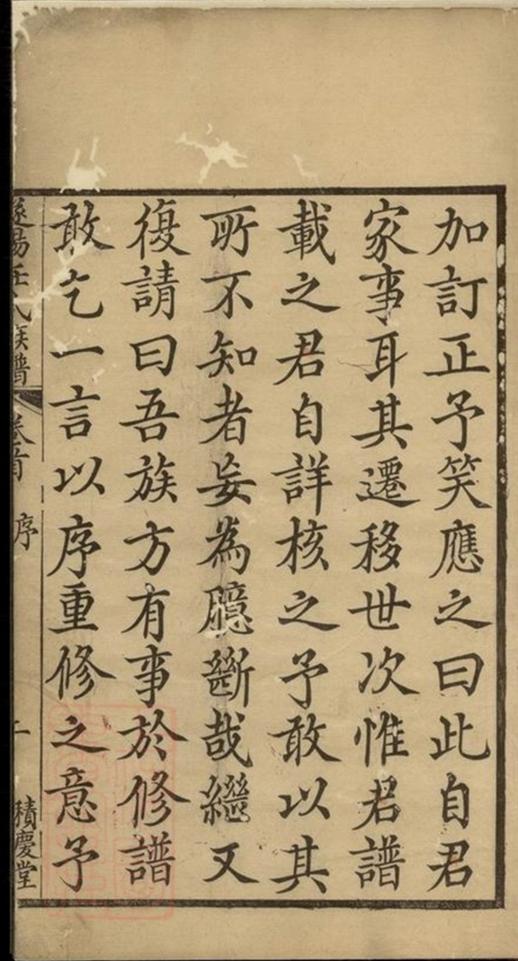 加訂正予笑應之曰此自君
家事耳其遷移世次惟君譜
載之君自詳核之予敢以其
所不知者妄為臆斷哉繼又
復請曰吾族方有事於修譜
敢乞一言以序重修之意予
任氏族譜 卷首 序 積慶堂